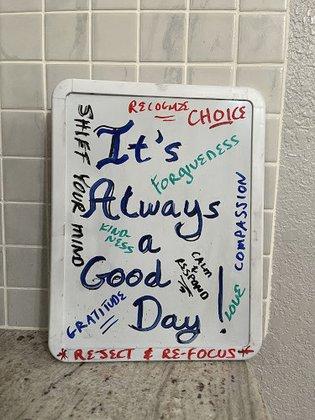 RECOGNIZE
CHOICE
SHIFT YOUR MIND
It's
FORGIVENESS
Always
COMPASSION
KIND
NESS
a
CALM
&
RESPOND
Good
GRATITUDE
Day!
LOVE
* REJECT & RE-FOCUS *